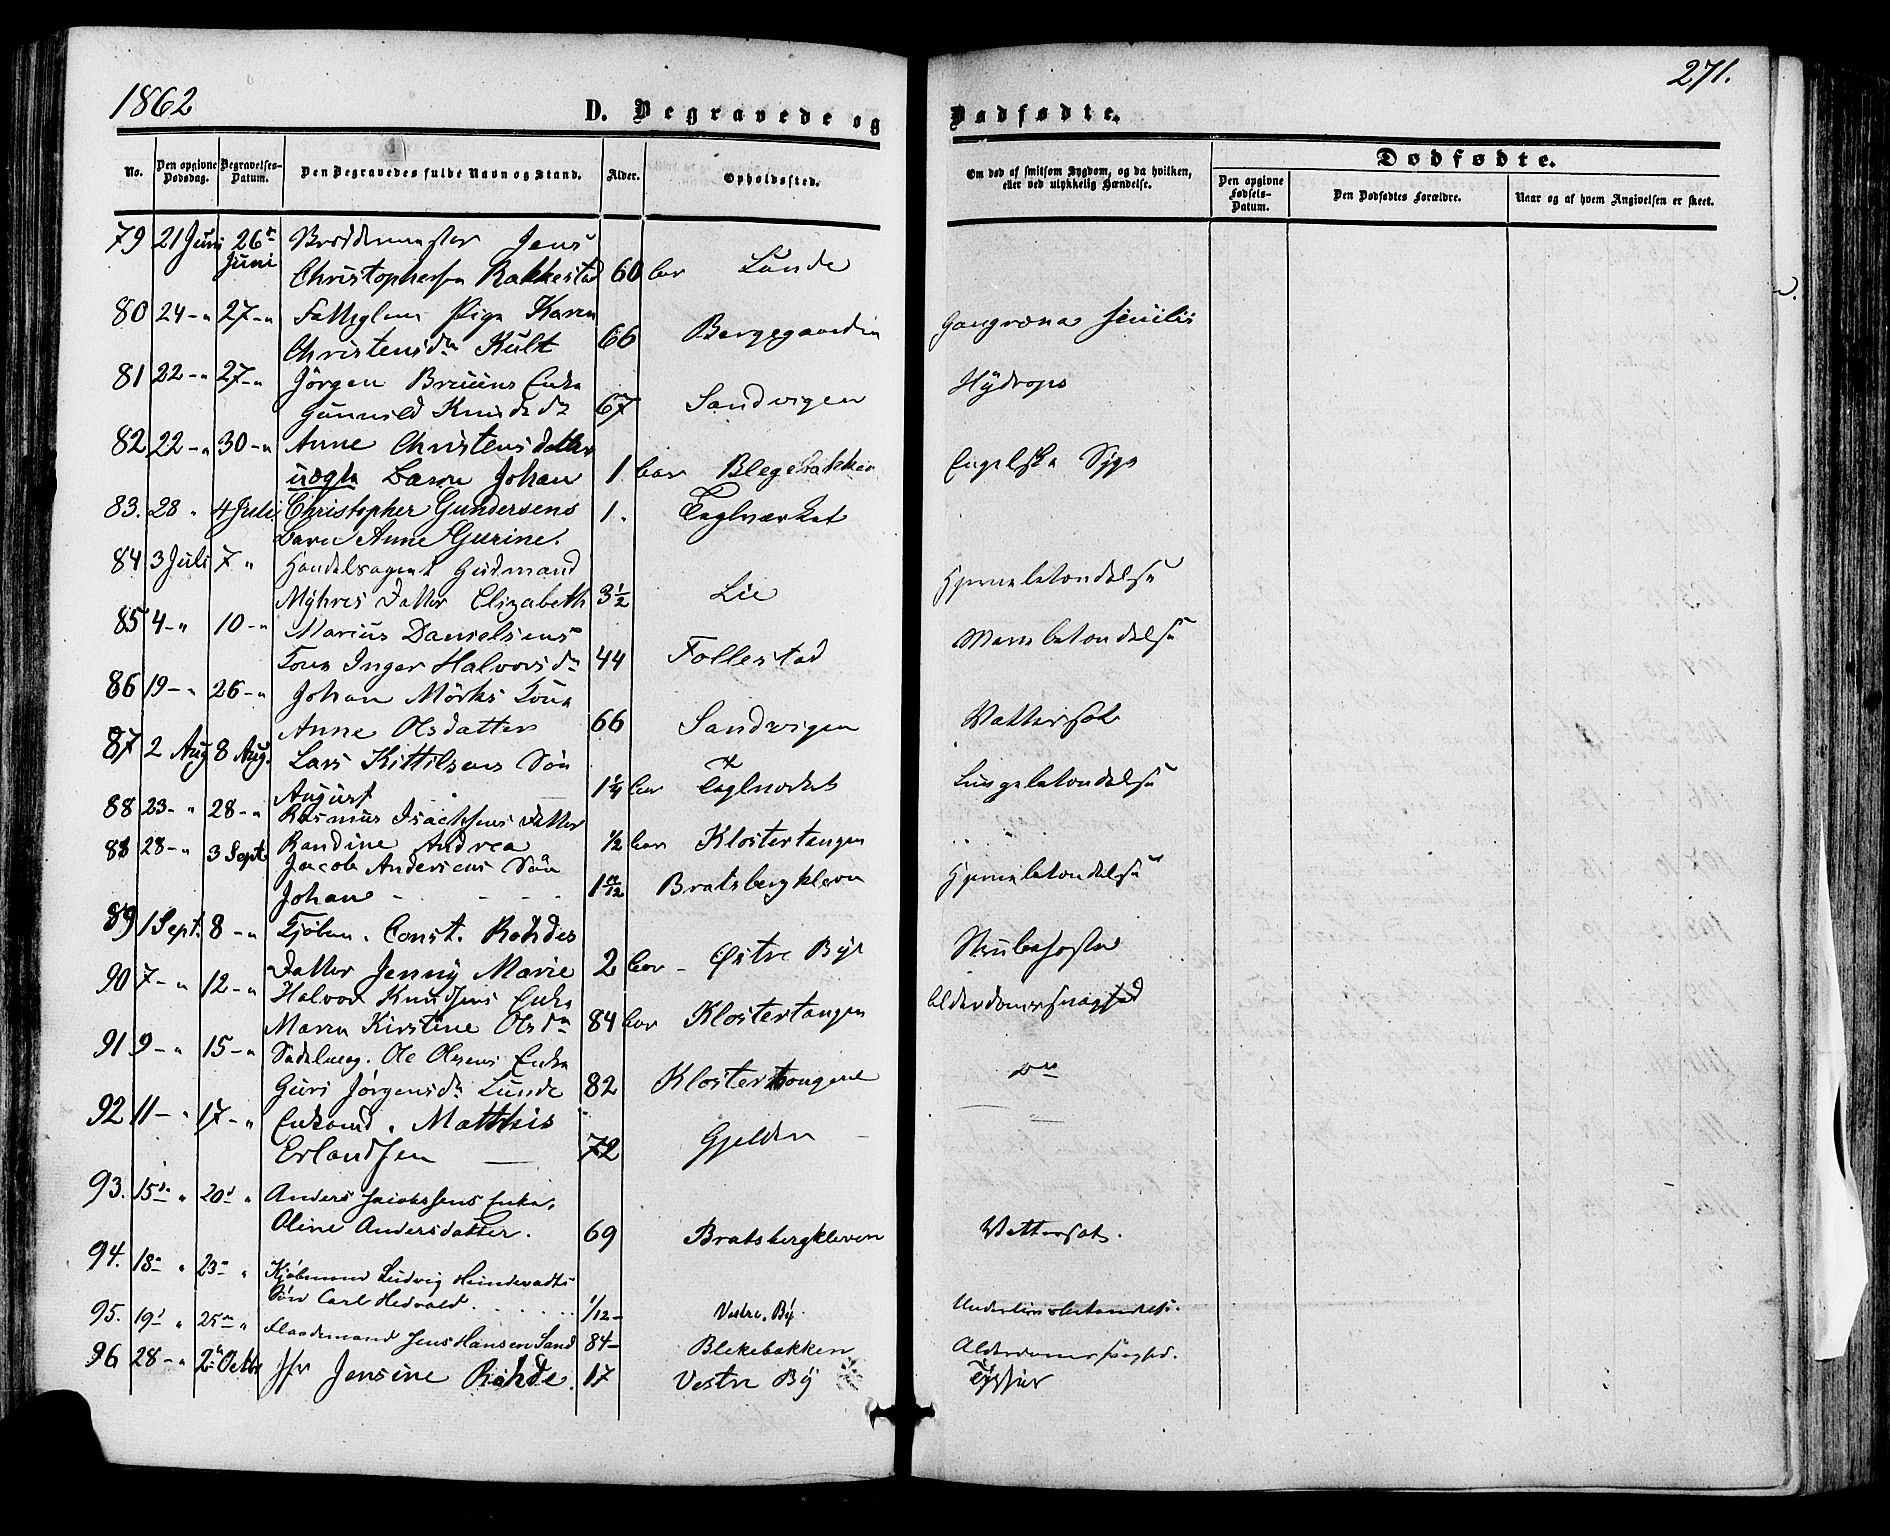 1862
D. Begravede og
Dødfødte.
271.
No.
Den opgivne Dødsdag.
Begravelses-Datum.
Den Begravedes fulde Navn og Stand.
Alder.
Opholdssted.
Om død af smitsom Sygdom, og da hvilken, eller ved ulykkelig Hændelse.
Dødfødte.
Den opgivne Fødsels-Datum.
Den Dødfødtes Forældre.
Naar og af hvem Angivelsen er skeet.
79 21 Juni 26 Juni Jens
Christophersen Rakkestad 60 Lunde
80 24 - " 27 - " Pige Karen
Christensdr Kult 66 Gangræna senilis
81 22 - " 27 - " Jörgen Bruuns Enke
Gunnild Knudsd 67 Sandvigen Hydrops
82 22 - " 30 - " Anne Christensdatter
uægte Barn Johan 1 Blegebakken Engelske Syge
83. 28 " 4 Juli Christopher Gundersens 1. Teglværket
Barn Anne Gurine.
84 3 Juli 7 " Handelsagent Gudmand
Myhres Datter Elizabeth 3½ Lie Hjernebetændelse
85 4 - " 10 - " Marius Danielsens
Kone Inger Halvorsdr 44 Follestad
86 19 - " 26 - " Johan Mörks Kone
Anne Olsdatter 66 Sandvigen Vattersot
87 2 Aug 8 Aug. Lars Kittilsens Sön
August 1¼ Teglverket Lungebetændelse
88 23 - " 28 - " Rasmus Isachsens Datter
Randine Andrea ½ Klostertangen
88 28 - " 3 Sept Jacob Andersens Sön
Johan 1 Bratsbergkleven Hjernebetændelse
89 1 Sept. 8 - " Const. Rohdes
Datter Jenny Marie 2 Østre By Strubehoste
90 7 - " 12 - " Halvor Knudsens Enke
Maren Kirstine Olsdr 84 Klostertangen Alderdomssvaghed
91 9 - " 15 - " Ole Olsens Enke
Guri Jørgensdr Lunde 82 Klostertangen
92 11 - " 17 - " Enkemd. Matthis
Erlandsen 72 Gjelden
93. 15 " 20 " Anders Jacobsens Enke,
Oline Andersdatter. 69 Bratsbergkleven Vattersot.
94. 18 " 23 " Kjöbmand Ludvig
Sön Carl Hedvald 1/12 - Vestre By.
95. 19 " 25 " Jens Hansen Sand 84 - Blekebakken
96 28 - " 2 Octbr Jfr Jensine Rohde. 17 Vestre By